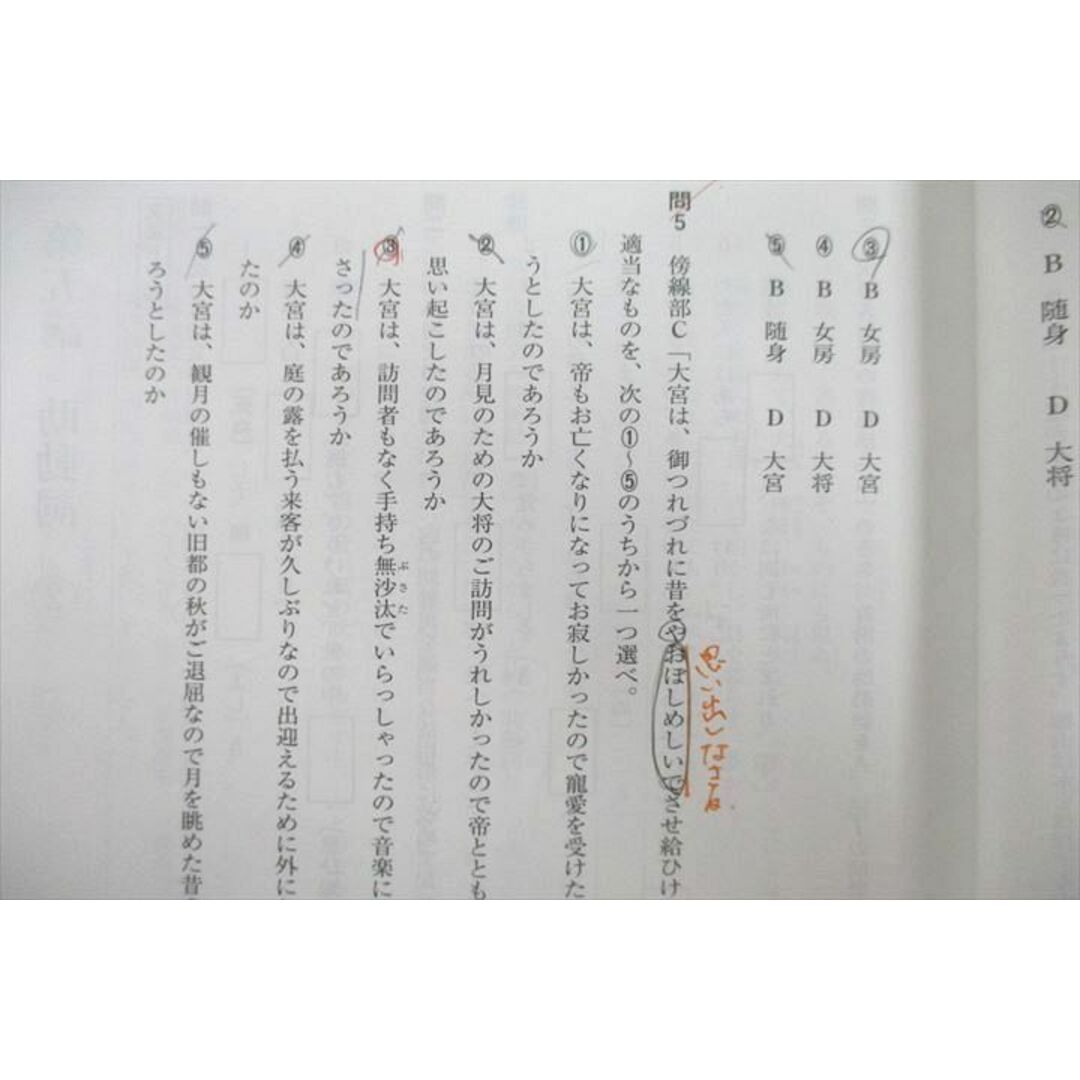 ② B 随身 D 大将
③ B 女房 D 大宮
④ B 女房 D 大将
⑤ B 随身 D 大宮
問5 傍線部C「大宮は、御つれづれに昔をやおぼしめしいでさせ給ひけ
思い出しなさる
適当なものを、次の①〜⑤のうちから一つ選べ。
① 大宮は、帝もお亡くなりになってお寂しかったので寵愛を受けた
うとしたのであろうか
② 大宮は、月見のための大将のご訪問がうれしかったので帝ととも
思い起こしたのであろうか
③ 大宮は、訪問者もなく手持ち無沙汰でいらっしゃったので音楽に
ぶさた
さったのであろうか
④ 大宮は、庭の露を払う来客が久しぶりなので出迎えるために外に
たのか
⑤ 大宮は、観月の催しもない旧都の秋がご退屈なので月を眺めた昔
ろうとしたのか